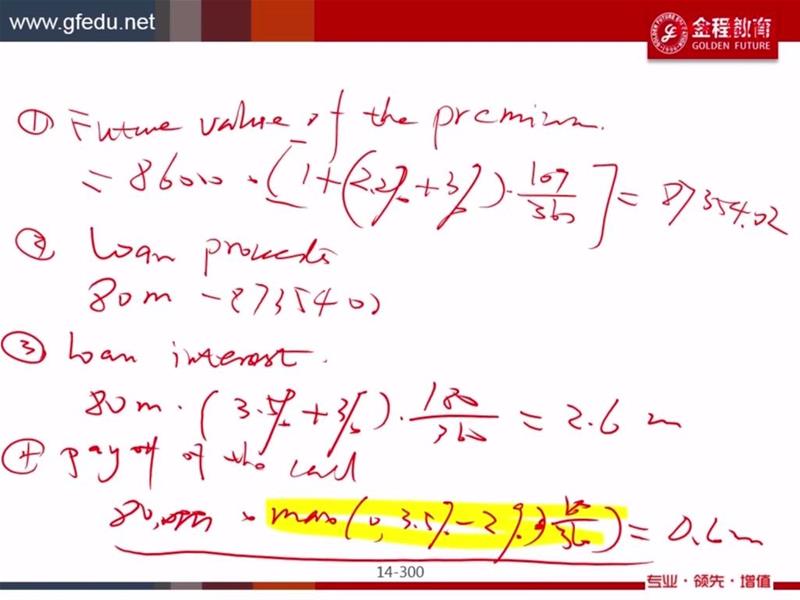 www.gfedu.net
金程教育
GOLDEN FUTURE
① Future value of the premium.
= 86000 · [1+(2.2%+3%)·107/360] = 87354.02
② Loan proceeds
80m - 87354 02
③ Loan interest.
80m · (3.5%+3%)·180/360 = 2.6 m
④ payoff of the call
· max(0, 3.5%-2%) = 0.6m
14-300
专业·领先·增值